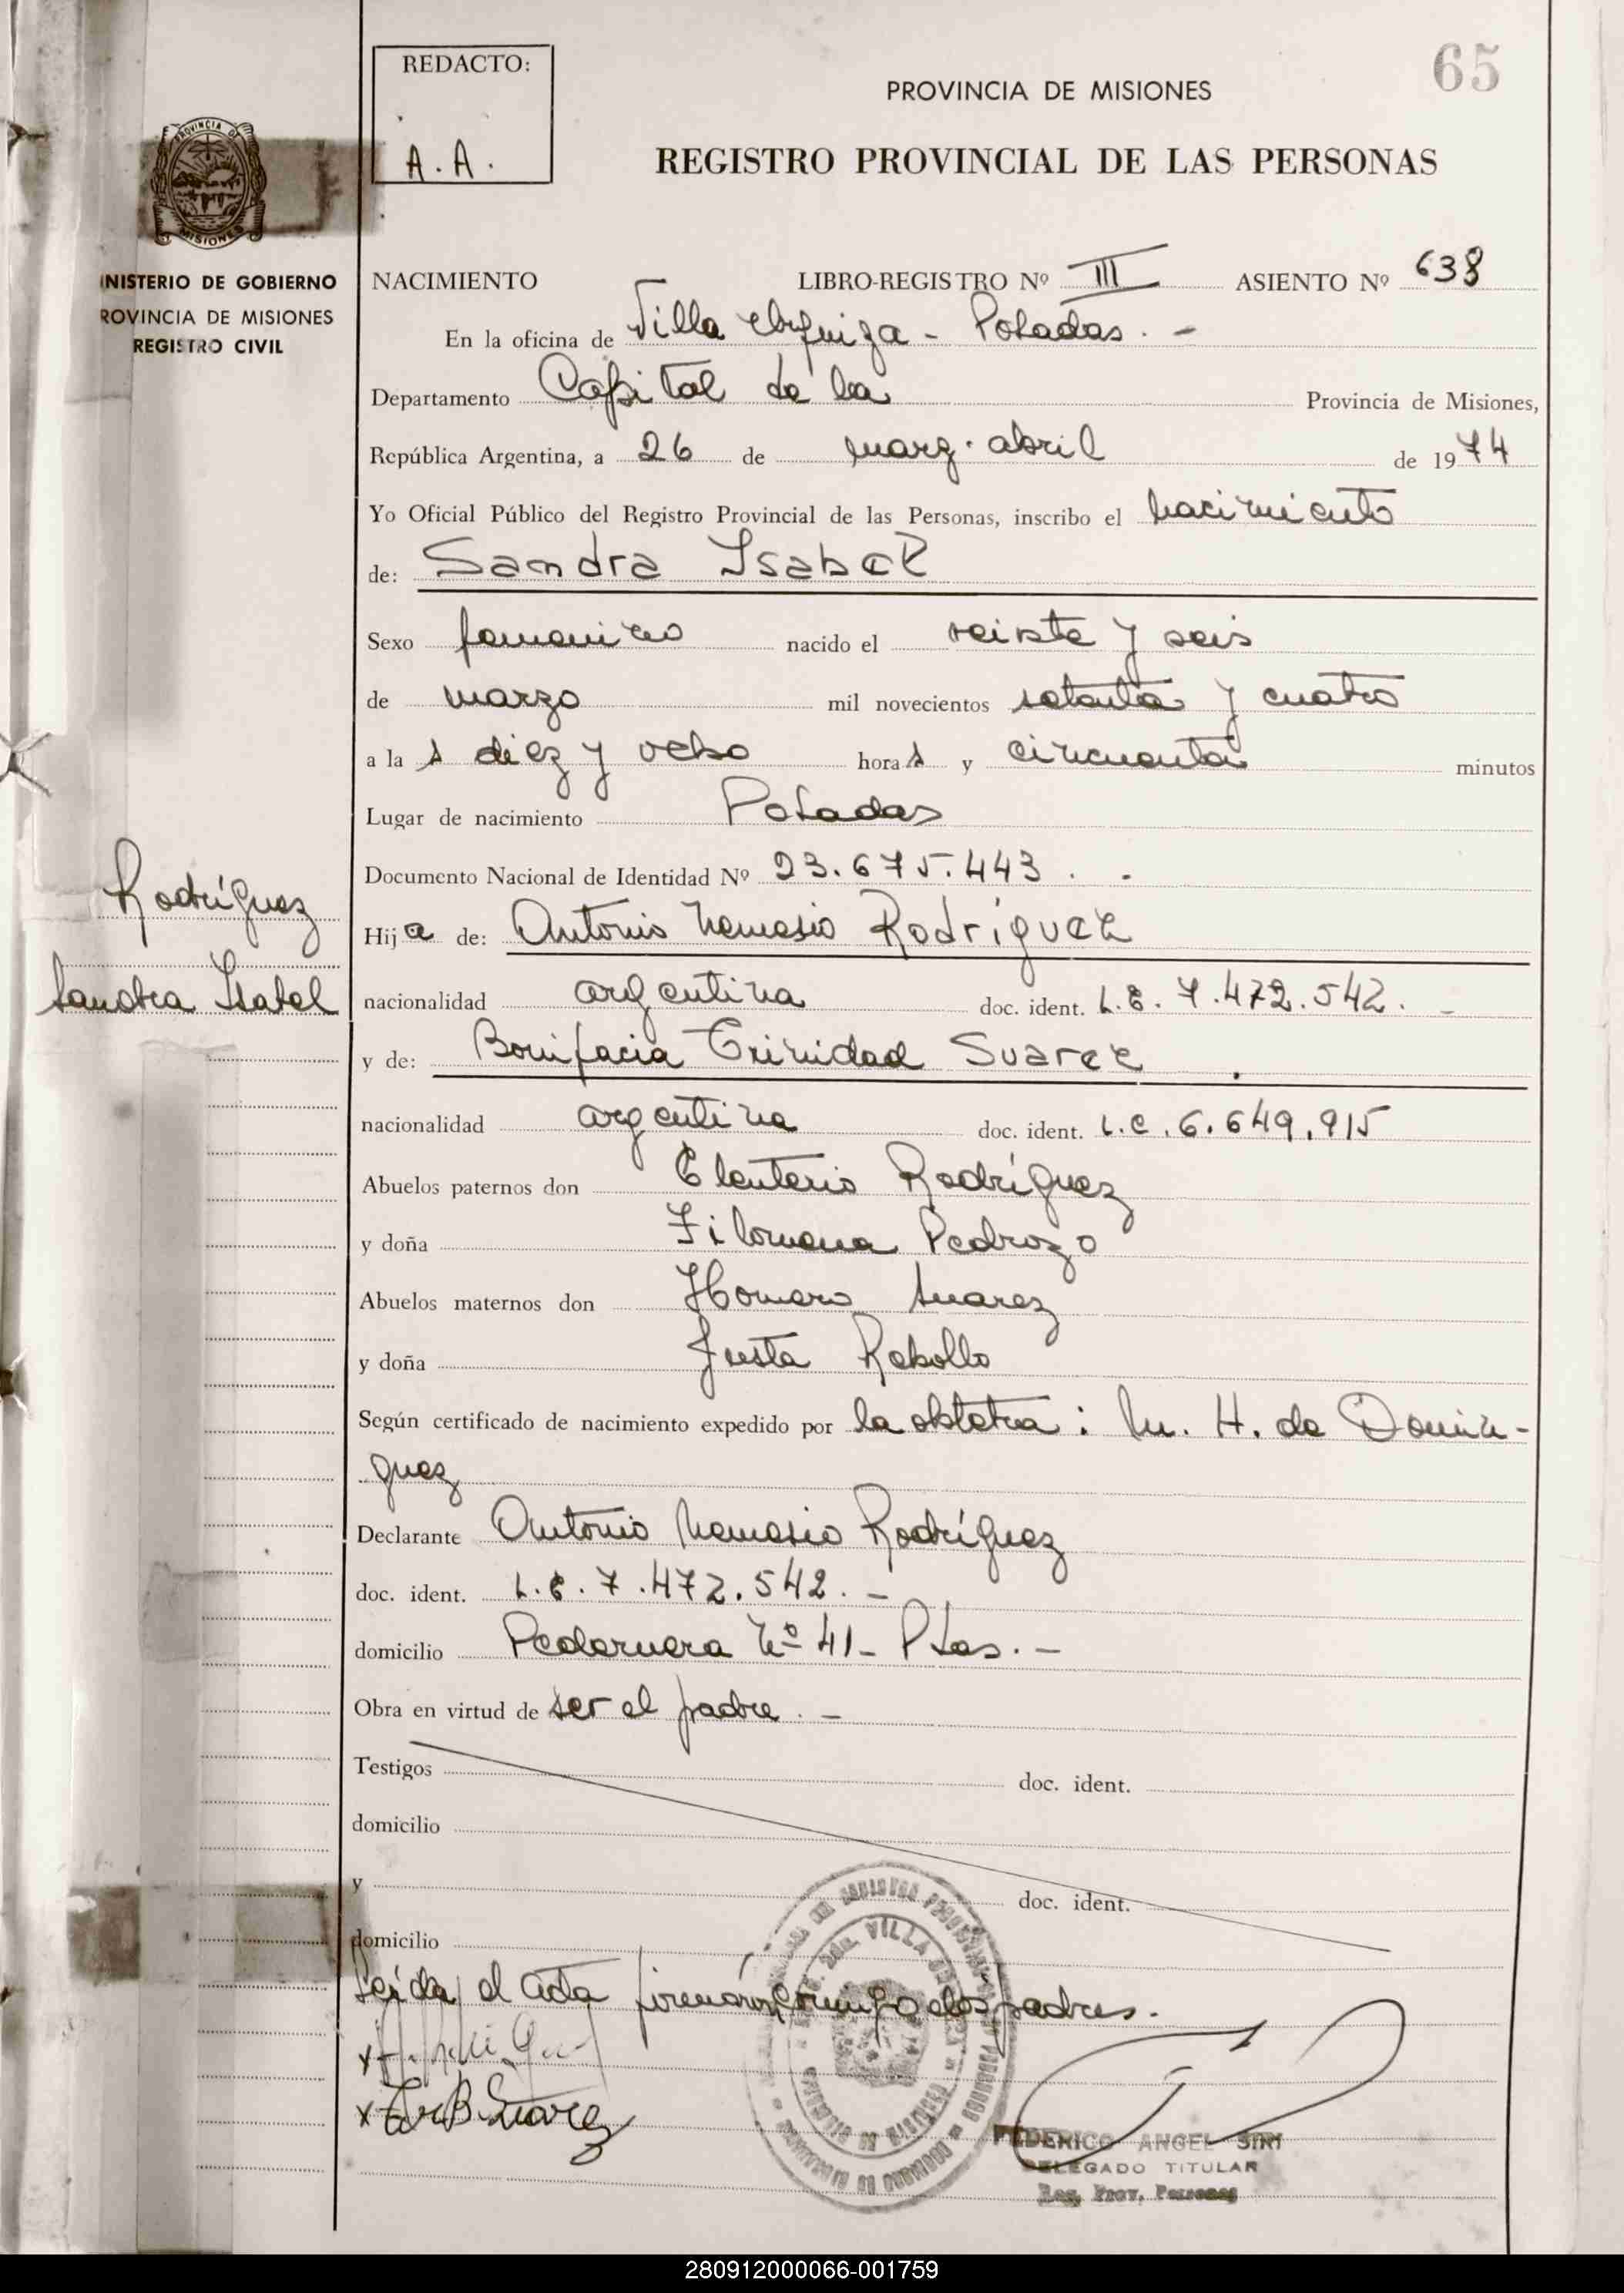 65
REDACTO:
A. A.
PROVINCIA DE MISIONES
REGISTRO PROVINCIAL DE LAS PERSONAS
PROVINCIA DE
MISIONES
INISTERIO DE GOBIERNO
ROVINCIA DE MISIONES
REGISTRO CIVIL
NACIMIENTO LIBRO-REGISTRO Nº III ASIENTO Nº 638
En la oficina de Villa Urquiza - Posadas. -
Departamento Capital de la Provincia de Misiones,
República Argentina, a 26 de marz. abril de 1974
Yo Oficial Público del Registro Provincial de las Personas, inscribo el nacimiento
de: Sandra Isabel
Sexo femenino nacido el veinte y seis
de marzo mil novecientos setenta y cuatro
a la s diez y ocho hora s y cincuenta minutos
Lugar de nacimiento Posadas
Documento Nacional de Identidad Nº 23.675.443. -
Rodríguez
Sandra Isabel
Hija de: Antonio Nemesio Rodríguez
nacionalidad argentina doc. ident. L.E. 7.472.542. -
y de: Bonifacia Trinidad Suarez
nacionalidad argentina doc. ident. L.C. 6.649.915
Abuelos paternos don Eleuterio Rodríguez
y doña Filomena Pedrozo
Abuelos maternos don Homero Suarez
y doña Justa Rebollo
Según certificado de nacimiento expedido por la obstetra: M. H. de Domin-
guez
Declarante Antonio Nemesio Rodríguez
doc. ident. L.E. 7.472.542. -
domicilio Pedernera Nº 41 - Pdas. -
Obra en virtud de ser el padre. -
Testigos doc. ident.
domicilio
y doc. ident.
domicilio
Leída el acta firmaron conmigo los padres.
B. Suarez
VILLA
FEDERICO ANGEL SIRI
DELEGADO TITULAR
Reg. Prov. Personas
280912000066-001759